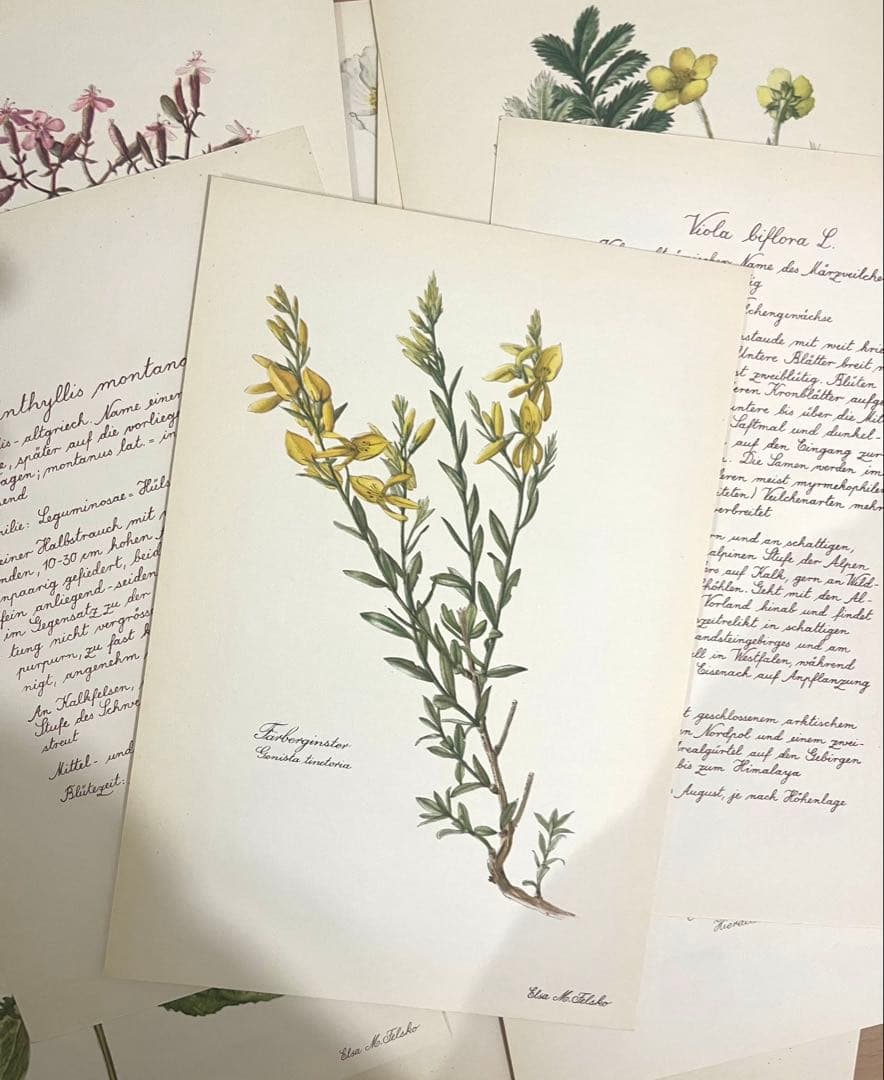 Viola biflora L.
Name des Märzveilche
ig
lchengewächse
staude mit weit krie
Untere Blätter breit
st zweiblütig. Blüten
eren Kronblätter aufge
untere bis über die Mit
Saftmal und dunkel-
auf den Eingang zur
Die Samen werden im
eren meist myrmekophilen
teten) Veilchenarten mehr
verbreitet
rn und an schattigen,
alpinen Stufe der Alpen
auf Kalk, gern an Wald-
höhlen. Geht mit den Al-
Vorland hinab und findet
zeitrelikt in schattigen
andsteingebirges und am
ll in Westfalen, während
Eisenach auf Anpflanzung
t geschlossenem arktischem
n Nordpol und einem zwei-
realgürtel auf den Gebirgen
bis zum Himalaya
August, je nach Höhenlage
nthyllis montana
is - altgriech. Name einer
e, später auf die vorlieg
agen; montanus lat. = in
send
milie: Leguminosae = Hüls
einer Halbstrauch mit
nden, 10-30 cm hohen
npaarig gefiedert, beid
fein anliegend-seiden
im Gegensatz zu der
tung nicht vergröss
purpurn, zu fast
nigt, angenehm
An Kalkfelsen,
Stufe des Schwe
streut
Mittel- und
Blütezeit:
Färberginster
Genista tinctoria
Elsa M. Felsko
Elsa M. Felsko